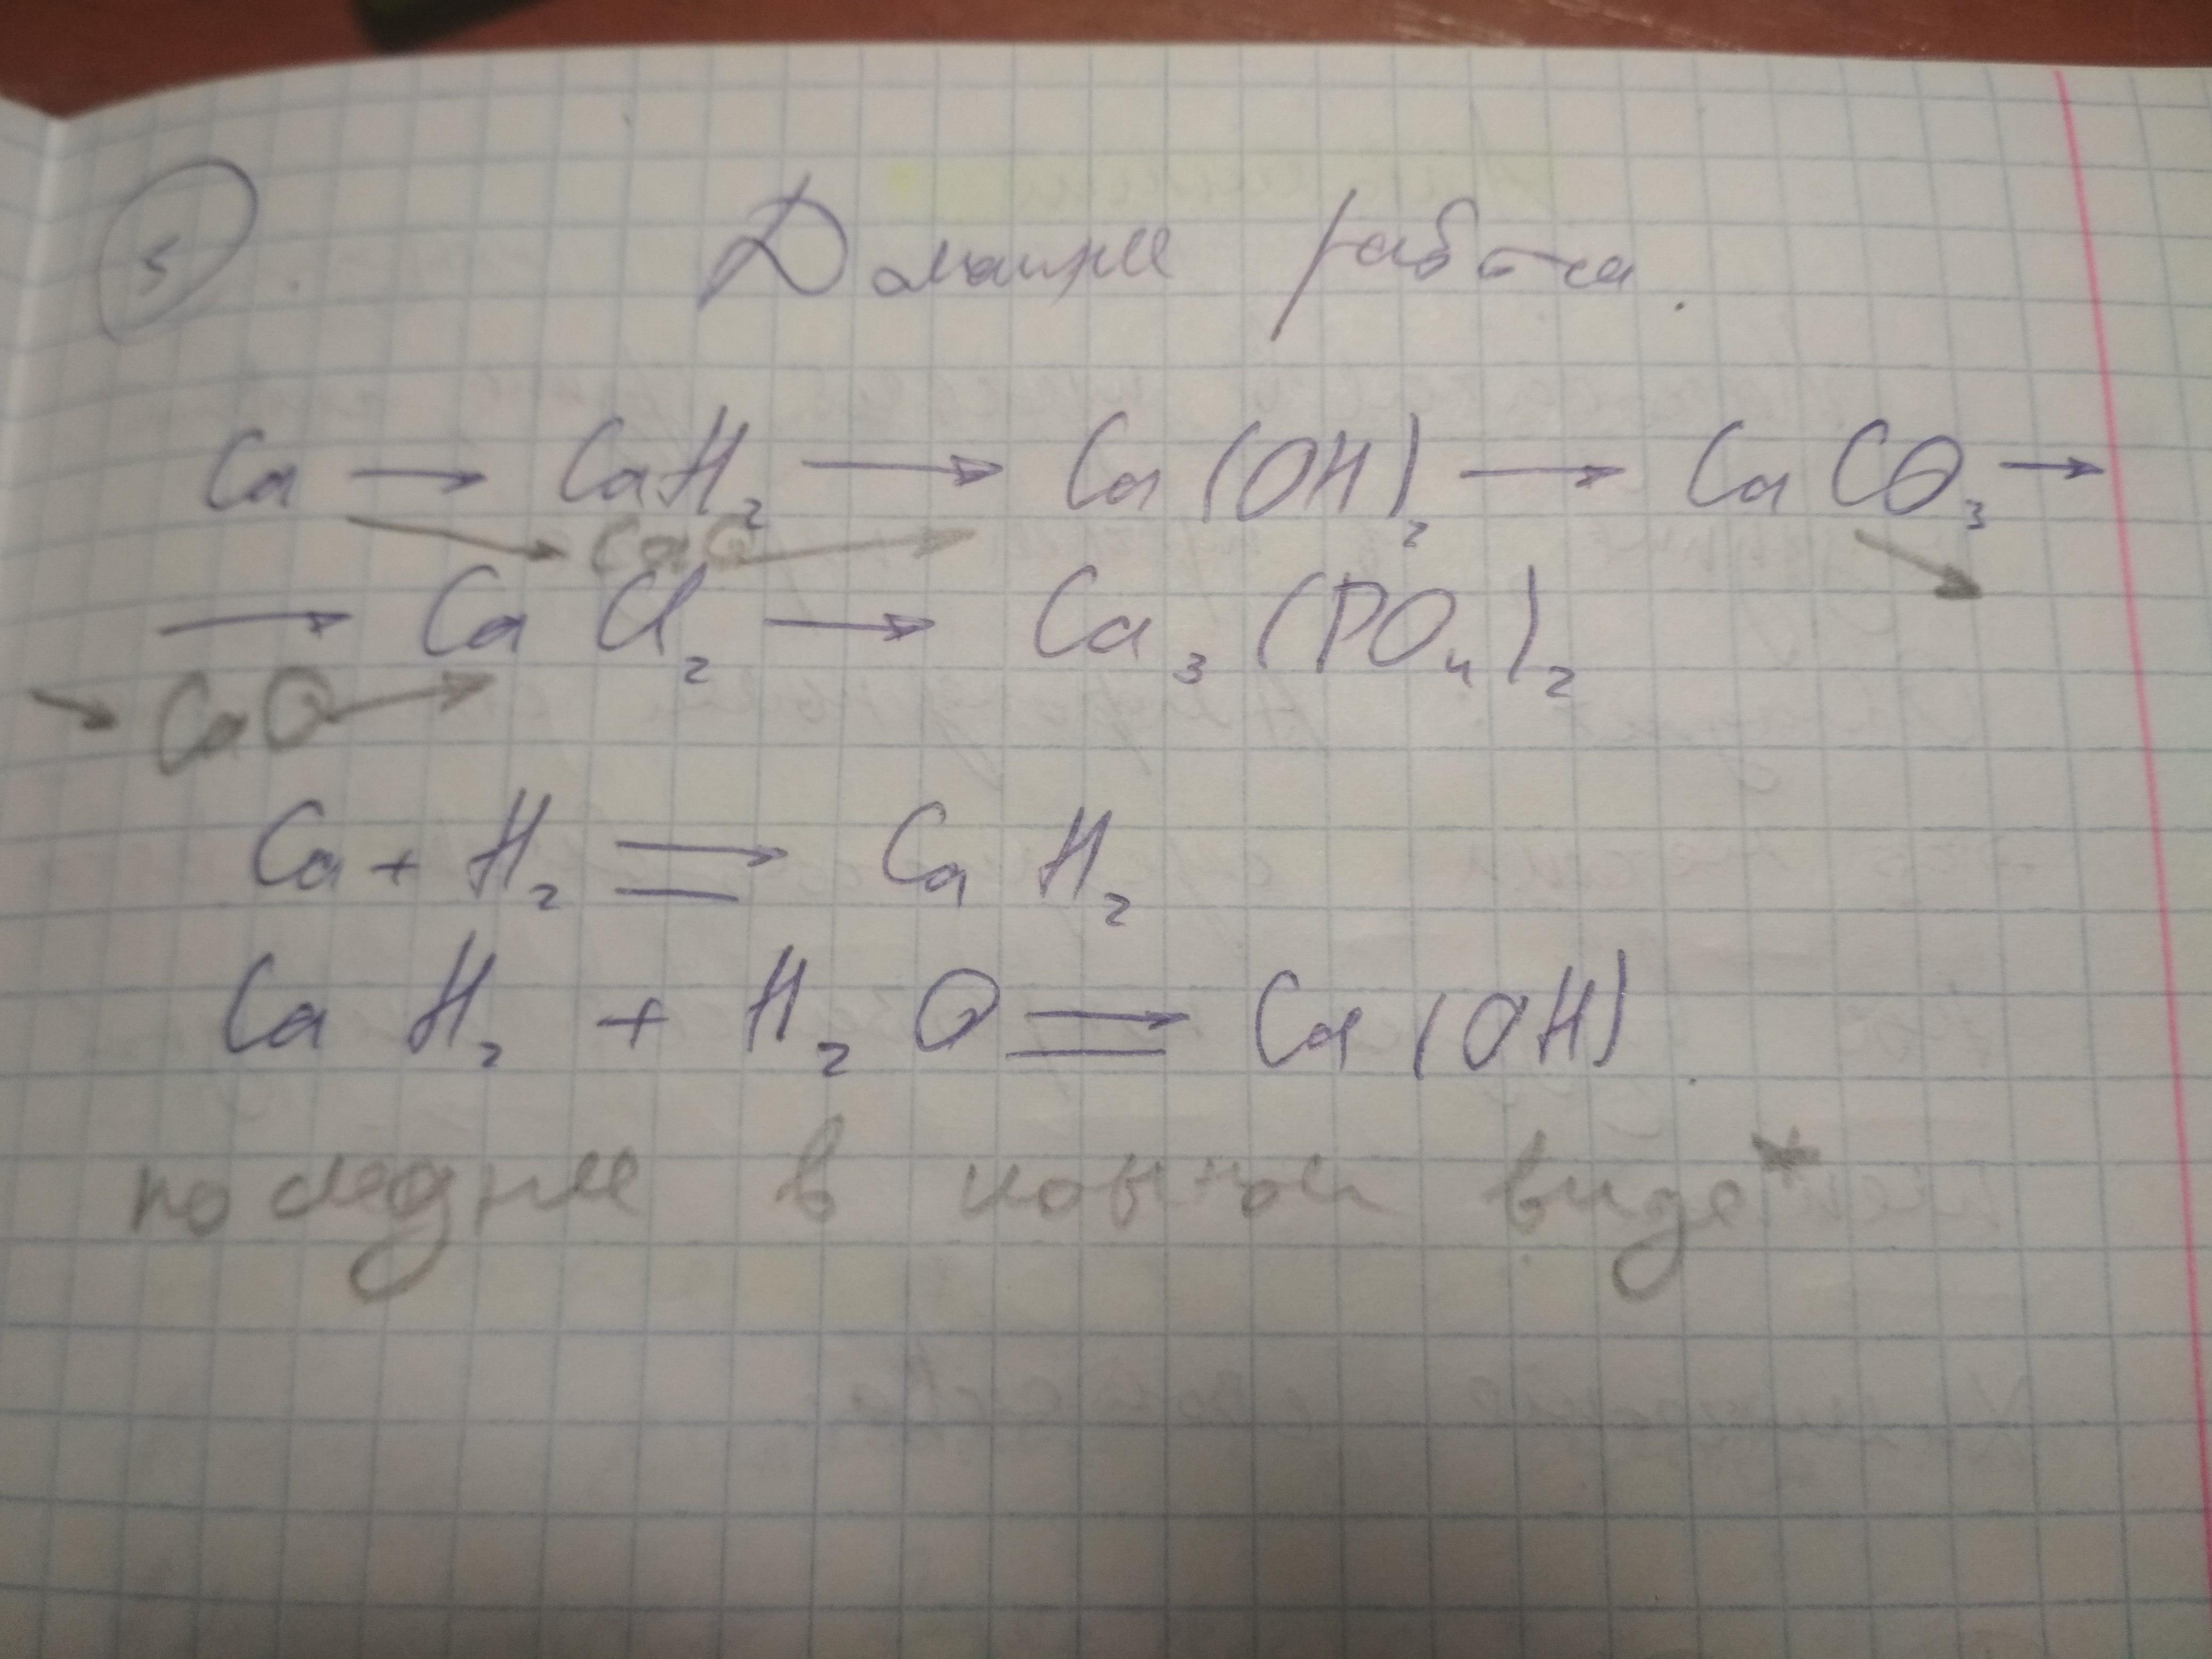 5
Домашнее работа.
Ca → CaH₂ → Ca(OH)₂ → CaCO₃ →
→ CaO →
→ CaCl₂ → Ca₃(PO₄)₂
→ CaO →
Ca + H₂ ⇒ CaH₂
CaH₂ + H₂O ⇒ Ca(OH)
последнее в ионном виде*